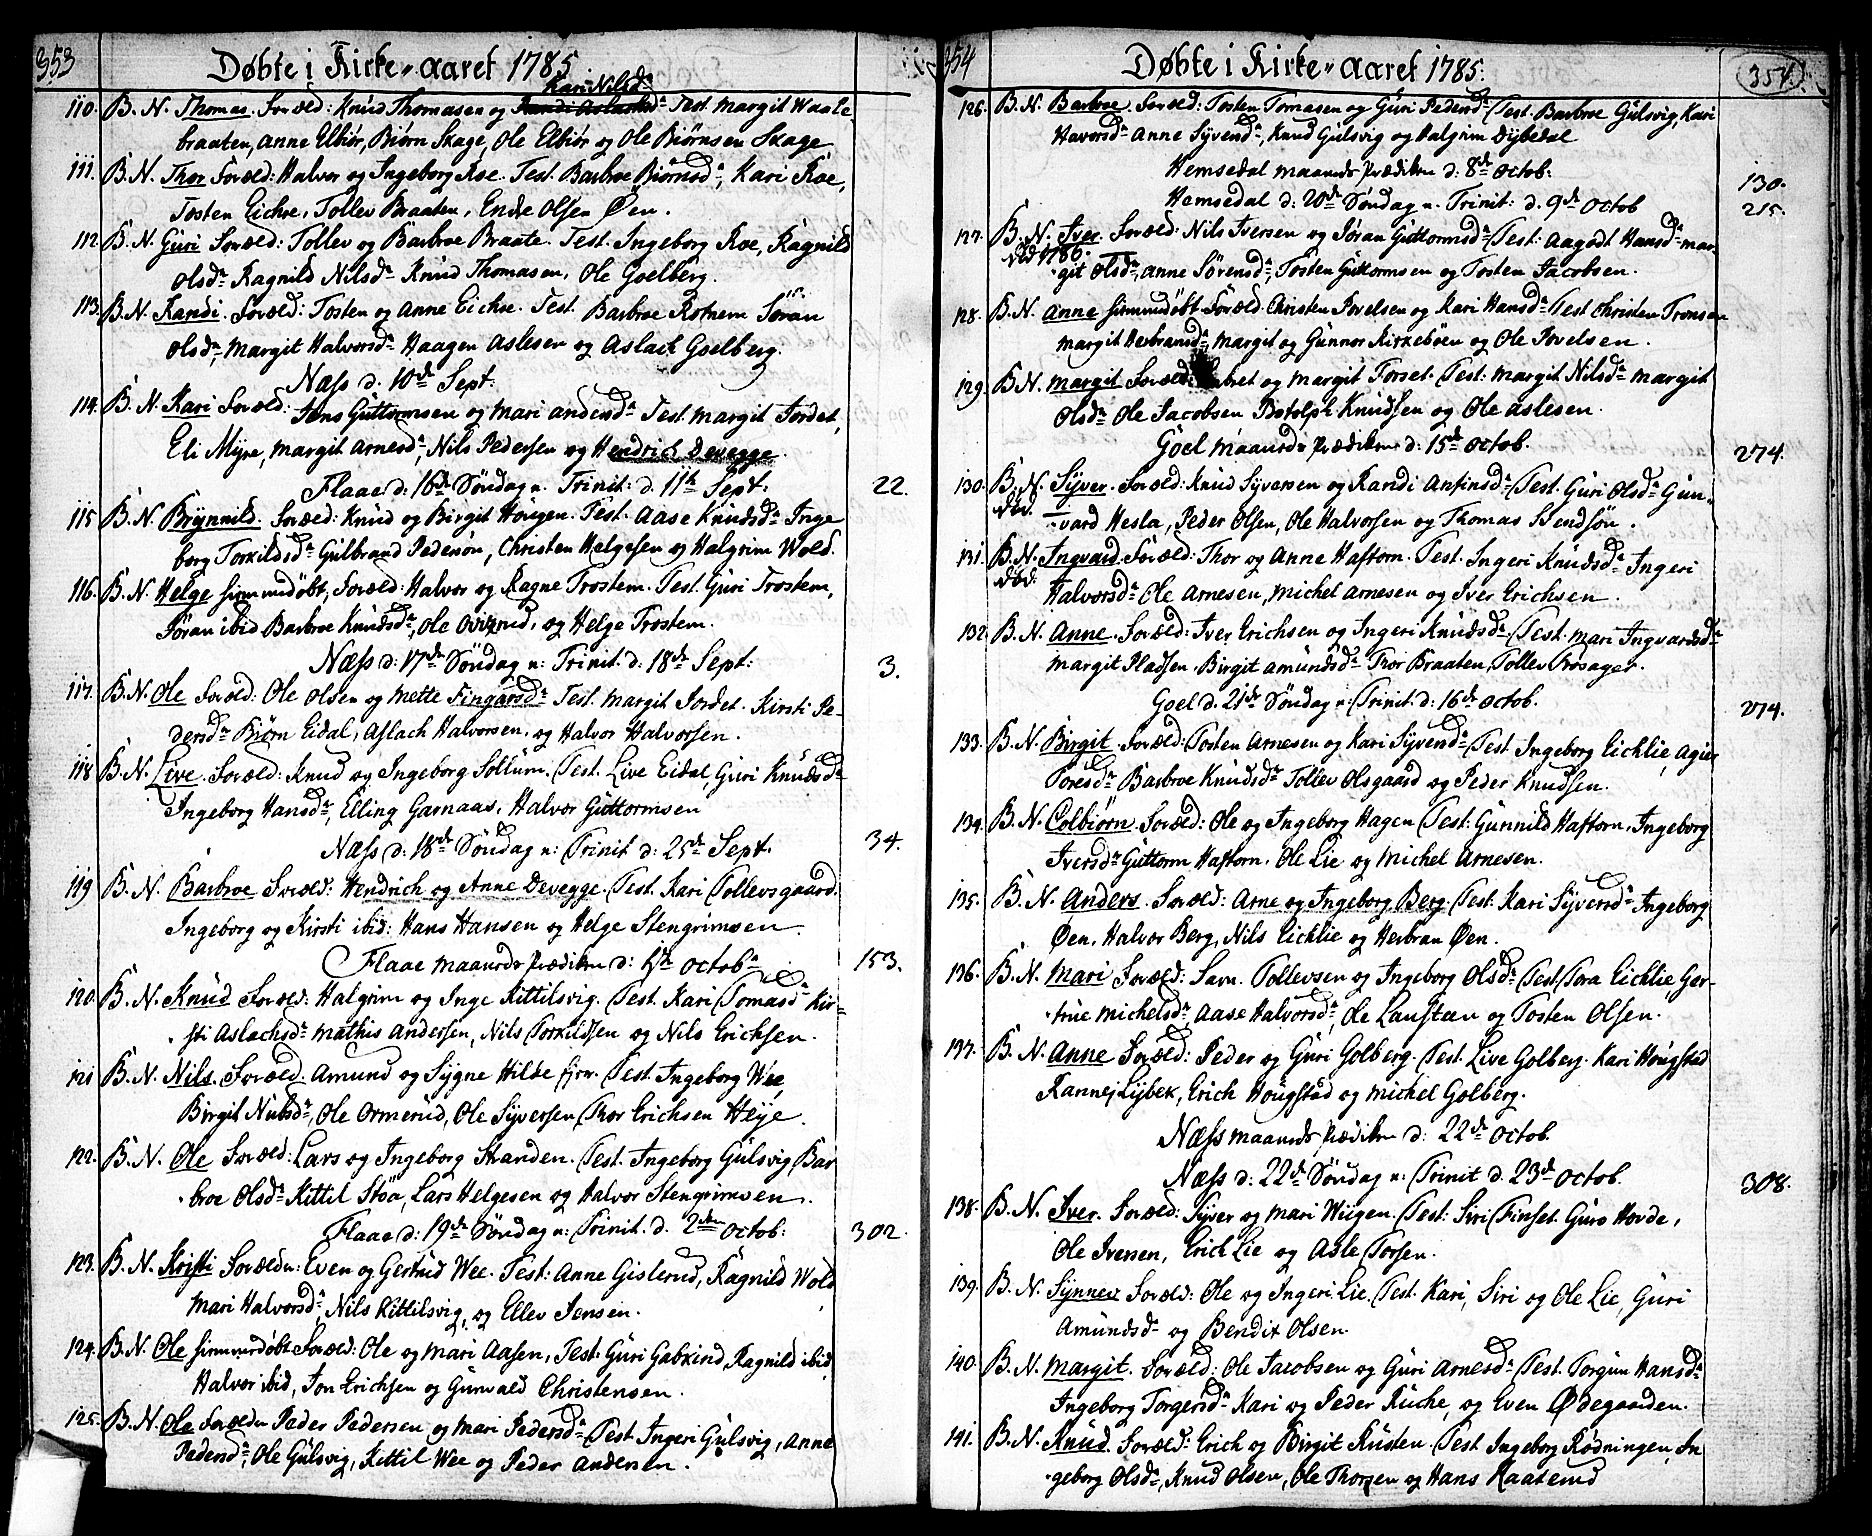 353
Døbte i Kirke-aaret 1785.
Kari Nilsdr
110. B. N. Thomas. Foræld: Knud Thomasen og Randi Aslachsdr Test. Margit Waale-
braaten, Anne Elbiör, Biörn Skage, Ole Elbiör og Ole Biörnsen Skage
111. B. N. Thor Foræld: Halvor og Ingeborg Roe. Test. Barbroe Biörnsdr, Kari Roe,
Tosten Eichre, Tollev Braaten, Endre Olsen Øen.
112. B. N. Guri Foræld: Tollev og Barbroe Braate. Test. Ingeborg Roe, Ragnild
Olsdr Ragnild Nilsdr Knud Thomasen, Ole Goelberg.
113. B. N. Randi. Foræld: Tosten og Anne Eichre. Test. Barbroe Rotnem Jöran
Olsdr, Margit Halvorsdr Haagen Aslesen og Aslach Goelberg.
Næss d. 10de Sept.
114. B. N. Kari Foræld: Jens Guttormsen og Mari Andersdr Test. Margit Jordet,
Eli Myre, Margit Arnesdr, Nils Pedersen og Hendrich Devegge.
Flaae d: 16de Söndag n. Trinit: d. 11te Sept. 22.
115 B. N. Brynnild. Foræld: Knud og Birgit Hougen. Test. Aase Knudsdr Inge
borg Torkildsdr Gulbrand Pedersön, Christen Helgesen og Halgrim Wold.
116. B. N. Helge hiemmedøbt, Foræld: Halvor og Ragne Trostem. Test. Guri Trostem,
Jöran ibid Barbroe Knudsdr, Ole Ovizrud, og Helge Trostem.
Næss d: 17de Söndag n: Trinit. d. 18de Sept: 3.
117. B. N. Ole Foræld. Ole Olsen og Mette Fingarsdr Test. Margit Jordet. Kirsti Pe-
dersdr Biörn Eidal, Aslach Halvorsen, og Halvor Halvorsen.
118 B. N. Live. Foræld: Knud og Ingeborg Sollum. Test. Live Eidal, Guri Knudsdr
Ingeborg Hansdr, Elling Garnaas, Halvor Guttormsen
Næss d: 18de Söndag n: Trinit d: 25de Sept. 34.
119 B. N. Barbroe Foræld: Hendrich og Anne Devegge. Test. Kari Tollevsgaard.
Ingeborg og Kirsti ibid: Hans Hansen og Helge Stengrimsen.
Flaae maaneds Prædiken d: 1te Octobr 153.
120. B. N. Knud Foræld: Halgrim og Inge Kittilsvig. Test. Kari Tomasdr Kir-
sti Aslachsdr Mathis Andersen, Nils Torkildsen og Nils Erichsen.
121 B. N. Nils. Foræld. Amund og Sygne Hilde Test. Ingeborg Wee
Birgit Nubsdr, Ole Ormerud, Ole Syversen, Thor Erichsen Heje.
122. B. N. Ole Foræld: Lars og Ingeborg Stranden. Test. Ingeborg Gulsvig, Bar
broe Olsdr Kittil Stöa, Lars Helgesen og Halvor Stengrimsen.
Flaae d: 19de Söndag n: Trinit. d. 2den Octob: 302.
123. B. N. Kristi Forældre: Even og Gertrud Wee. Test: Anne Gislerud, Ragnild Wold
Mari Halvorsdr, Nils Kittilsvig, og Ellev Jensen.
124. B. N. Ole hiemmedøbt Foræld: Ole og Mari Aasen, Test: Guri Gabriud, Ragnild ibid,
Halvor ibid, Jon Erichsen og Gunvald Christensen.
125. B. N. Ole Forældre Peder Pedersen og Mari Pedersdr Test Ingeri Gulsvig, Anne
Pedersdr, Ole Gulsvig, Kittil Wee og Peder Andersen.
354
Døbte i Kirke-aaret 1785. 354.
126. B. N. Barbroe. Foræld: Tosten Tomasen og Guri Pedersdr Test. Barbroe Gulsvig, Kari
Havorsdr Anne Syversdr, Knud Gulsvig og Halgrim Dybedal
Hemsedal maaneds Prædiken d: 8de Octob: 130.
Hemsedal d: 20de Söndag n. Trinit: d. 9de Octob 215.
127. B. N. Iver Foræld: Nils Iversen og Jöran Guttormsdr Test: Aagodt Hansdr Mar-
død 1786. git Olsdr, Anne Sörensdr, Tosten Guttormsen og Tosten Jacobsen.
128. B. N. Anne hiemmedøbt Foræld Christen Povelsen og Kari Hansdr Test Christen Tronsen
Margit Herbransdr, Margit og Gunnor Kirkeböen og Ole Povelsen.
129. B. N. Margit Foræld: Embret og Margit Torset. Test: Margit Nilsdr Margit
Olsdr Ole Jacobsen Botolph Knudsen og Ole Aslesen.
Goel maaneds Prædiken d: 15de Octob. 274.
130. B. N. Syver. Foræld: Knud Syversen og Randi Anfinsdr Test. Guri Olsdr Gun-
død. vard Hesla, Peder Olsen, Ole Halvorsen og Thomas Svendsön.
131. B. N. Ingvard Foræld: Thor og Anne Haftorn. Test. Ingeri Knudsdr Ingeri
død: Halvorsdr Ole Arnesen, Michel Arnesen og Iver Erichsen.
132. B. N. Anne. Foræld: Iver Erichsen og Ingeri Knudsdr Test. Mari Ingvardsdr
Margit Pladsen. Birgit Amundsdr Thor Braaten, Tollev Trosager.
Goel d. 21de Söndag n: Trinit d: 16de Octob. 274.
133. B. N. Birgit. Foræld: Tosten Arnesen og Kari Syversdr Test Ingeborg Eichlie, Agier
Toresdr Barbroe Knudsdr Tollev Olsgaard og Peder Knudsen.
134. B. N. Colbiörn. Foræld: Ole og Ingeborg Hagen Test: Gunnild Haftorn, Ingeborg
Iversdr Guttorm Haftorn. Ole Lie og Michel Arnesen.
135. B. N. Anders. Foræld: Arne og Ingeborg Berg. Test: Kari Syversdr Ingeborg
Øen, Halvor Berg, Nils Eichlie og Herbran Øen.
136. B. N. Mari Foræld: Savn. Tollevsen og Ingeborg Olsdr Test Tora Eichlie, Ger-
true Michelsdr Aase Halvorsdr, Ole Lausteen og Tosten Olsen.
137. B. N. Anne Foræld: Peder og Guri Golberg. Test. Live Golberg. Kari Hougstad
Rannej Lybek, Erich Hougstad og Michel Golberg.
Næss maaneds Prædiken d: 22de Octob.
Næss d: 22de Söndag n: Trinit d. 23de Octob. 308.
138. B. N. Iver. Foræld: Syver og Mari Wiigen. Test: Siri Finset. Guro Hovde,
Ole Iversen, Erich Lie og Asle Torsen.
139. B. N. Synnev Foræld: Ole og Ingeri Lie. Test. Kari, Siri og Ole Lie, Guri
Amundsdr og Bendix Olsen.
140. B. N. Margit. Foræld: Ole Jacobsen og Guri Arnesdr Test. Torgun Hansdr
Ingeborg Torgersdr Kari og Peder Ruche, og Even Ødegaarden.
141. B. N. Knud. Foræld: Erich og Birgit Rusten. Test Ingeborg Rodningen, In
geborg Olsdr, Knud Olsen, Ole Thorsen og Hans Kaaserud